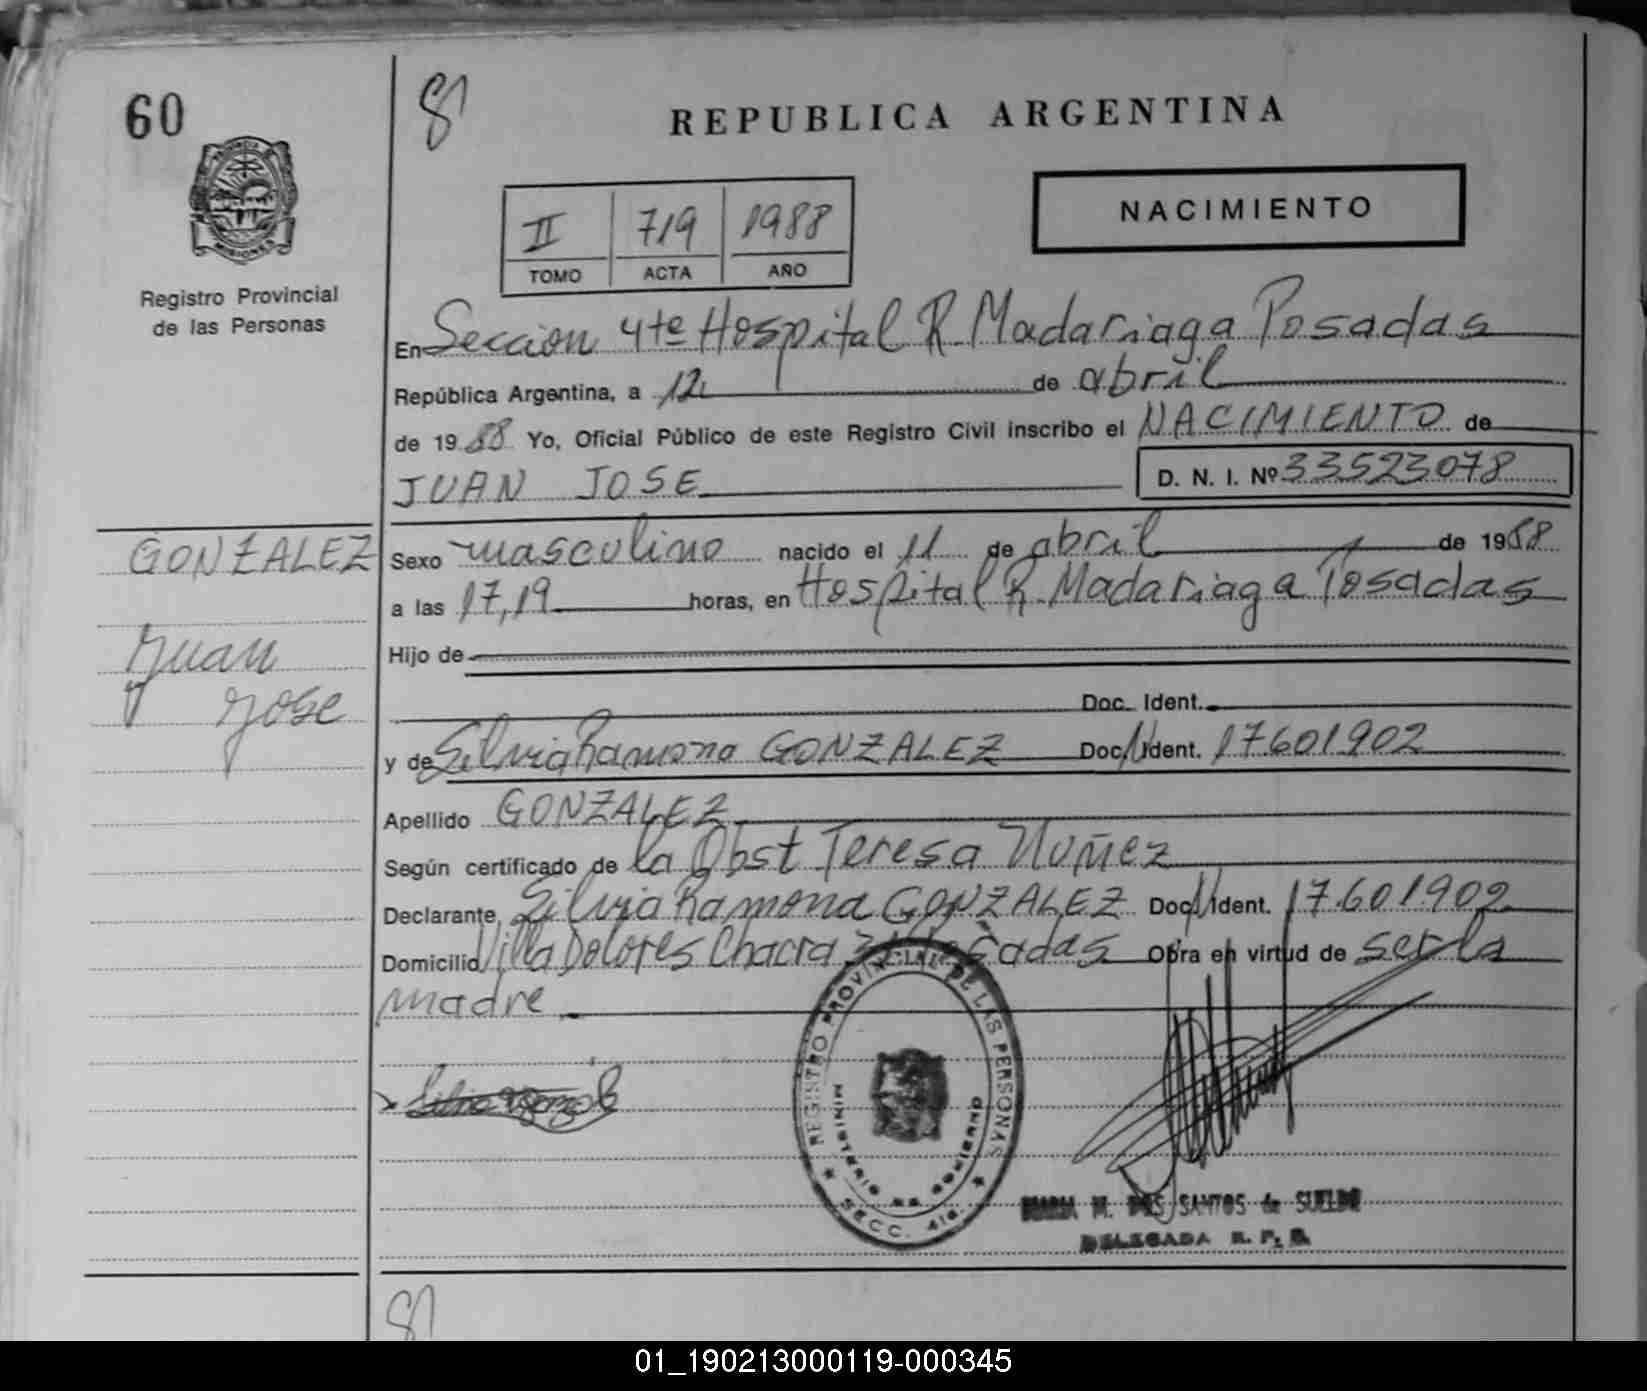 60
81
REPUBLICA ARGENTINA
PROVINCIA DE
MISIONES
Registro Provincial
de las Personas
II 719 1988
TOMO ACTA AÑO
NACIMIENTO
En Seccion 4ta Hospital R Madariaga Posadas
República Argentina, a 12 de abril
de 1988 Yo, Oficial Público de este Registro Civil inscribo el NACIMIENTO de
JUAN JOSE D. N. I. Nº 33523078
GONZALEZ
Juan
Jose
Sexo masculino nacido el 11 de abril de 1988
a las 17,19 horas, en Hospital R Madariaga Posadas
Hijo de
Doc. Ident.
y de Silvia Ramona GONZALEZ Doc. Ident. 17601902
Apellido GONZALEZ
Según certificado de la Obst Teresa Nuñez
Declarante Silvia Ramona GONZALEZ Doc. Ident. 17.601.902
Domicilio Villa Dolores Chacra Posadas Obra en virtud de ser la
madre
REGISTRO PROVINCIAL DE LAS PERSONAS
MINISTERIO DE GOBIERNO
SECC. 4ta.
MARIA M. DOS SANTOS de SUELDO
DELEGADA R. P. P.
81
01_190213000119-000345